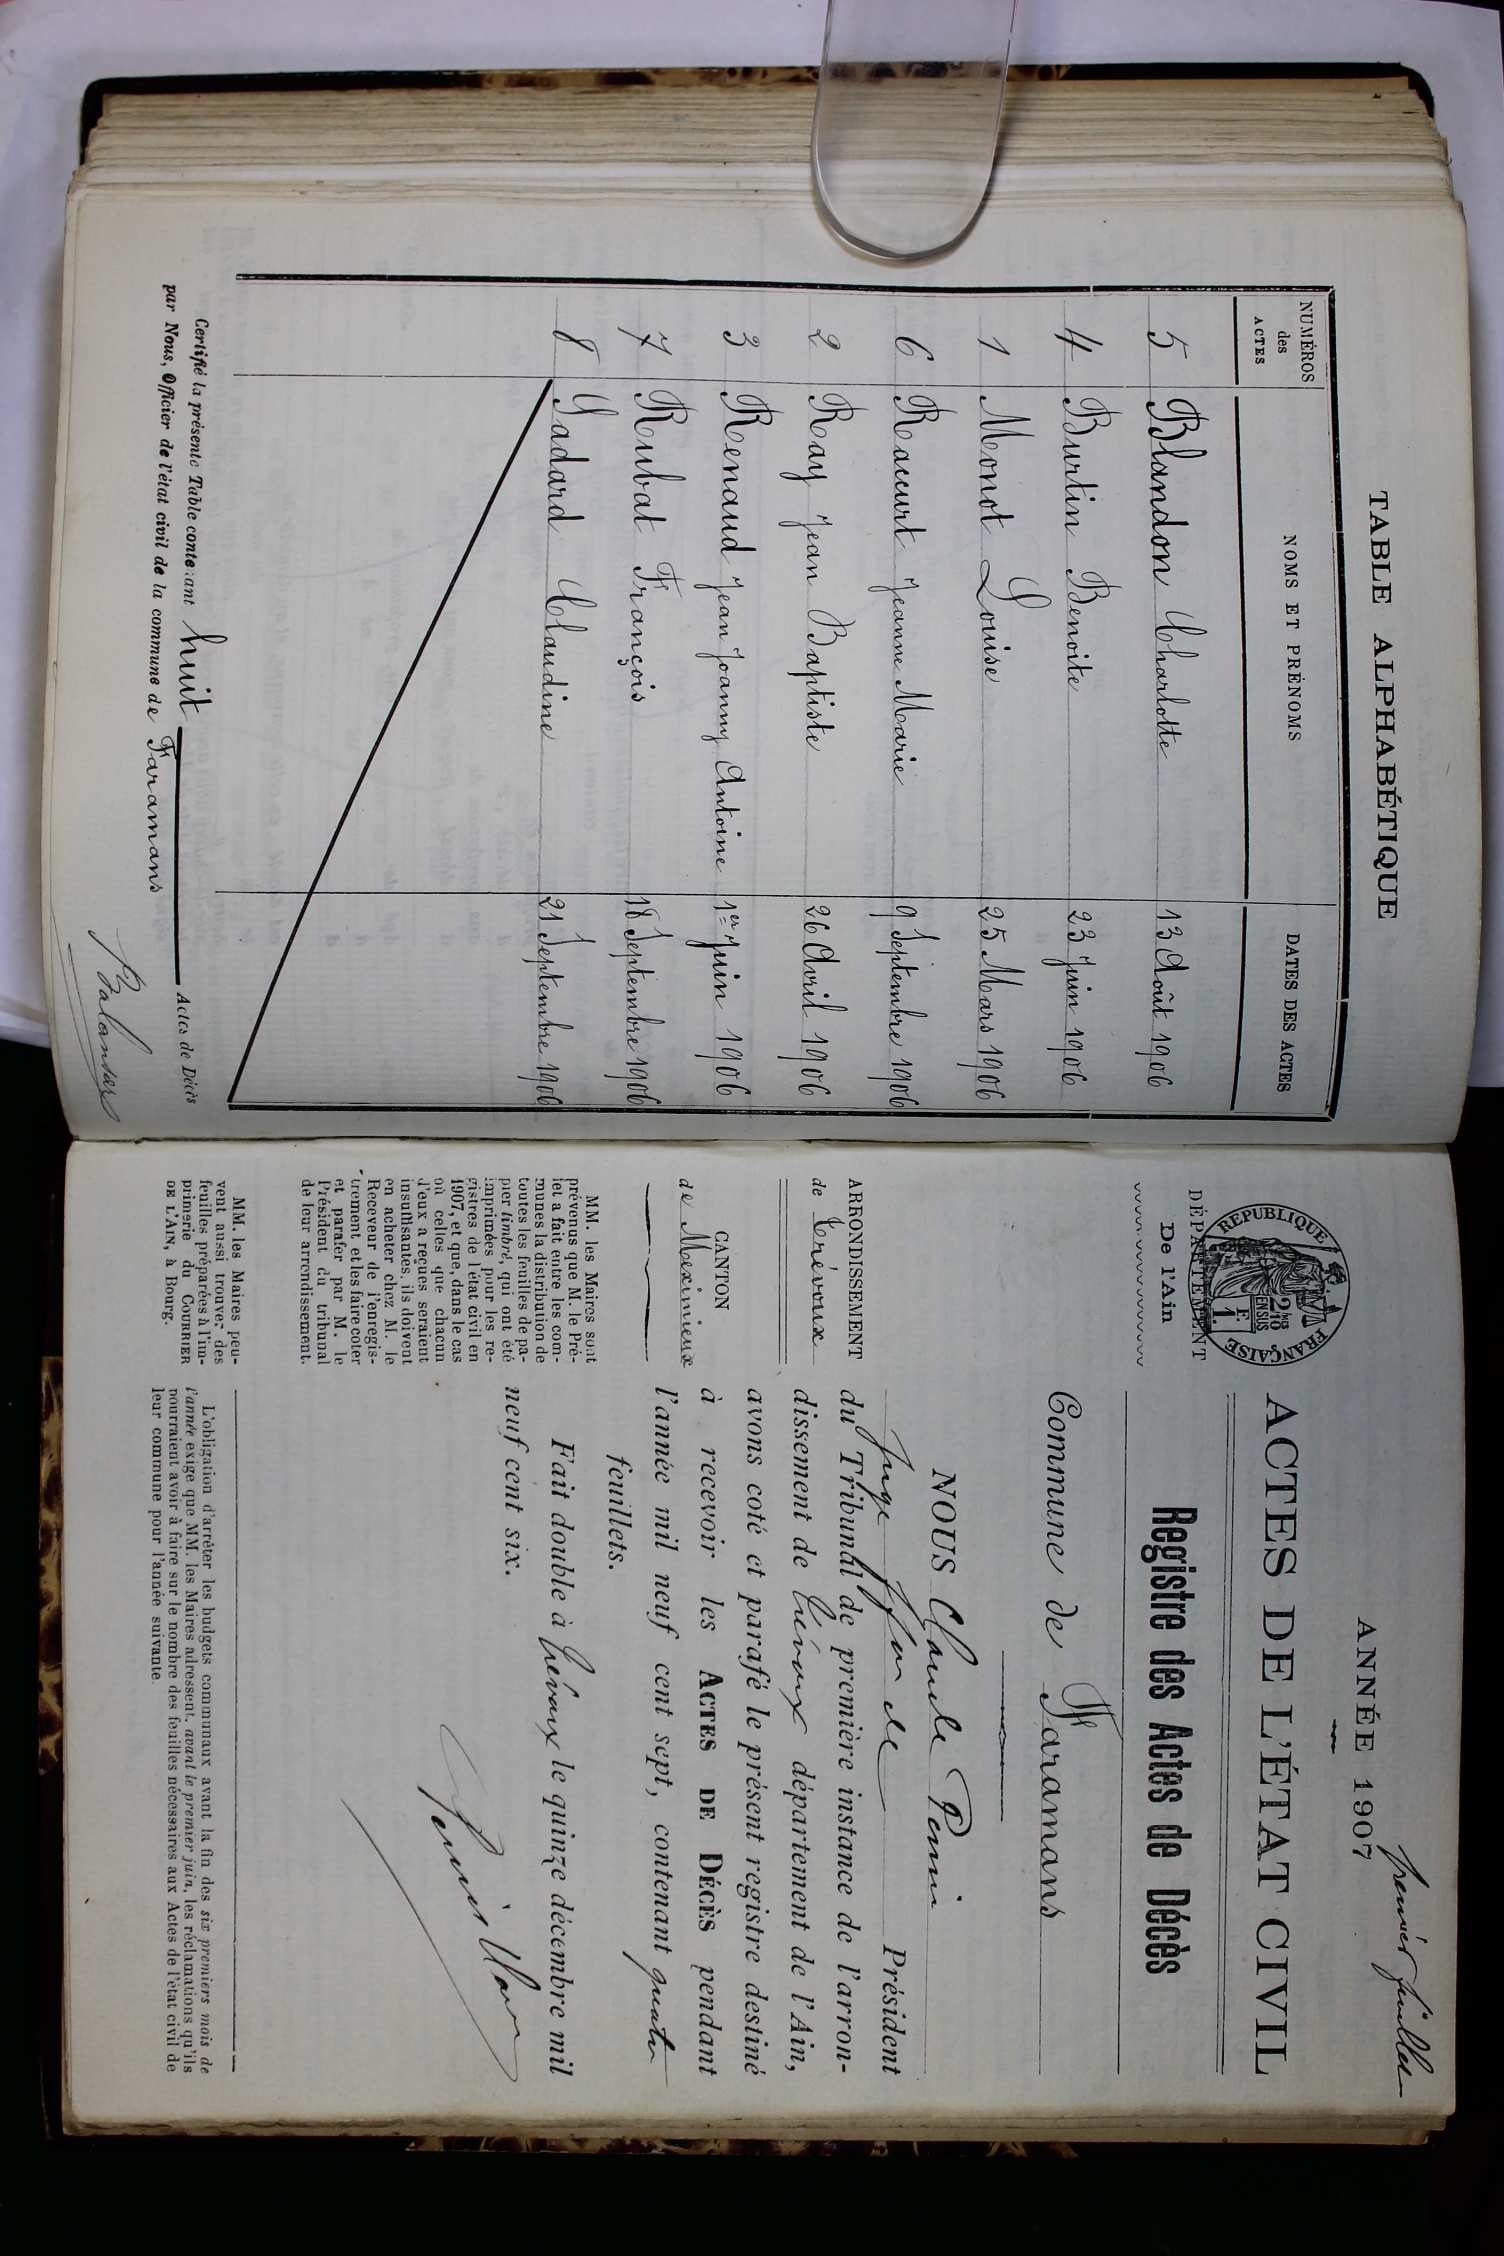 TABLE ALPHABÉTIQUE
NUMÉROS des ACTES NOMS ET PRÉNOMS DATES DES ACTES
5 Blandon Charlotte 13 Août 1906
4 Burtin Benoite 23 Juin 1906
1 Monot Louise 25 Mars 1906
6 Racurt Jeanne Marie 9 Septembre 1906
2 Ray Jean Baptiste 26 Avril 1906
3 Renaud Jean Joanny Antoine 1er Juin 1906
7 Rubat François 18 Septembre 1906
8 Sadard Claudine 21 Septembre 1906
Certifié la présente Table contenant huit Actes de Décès
par Nous, Officier de l'état civil de la commune de Faramans
premier feuillet
ANNÉE 1907
REPUBLIQUE FRANÇAISE
2 DMES 10 EN SUS
1 F.
DÉPARTEMENT
De l'Ain
ARRONDISSEMENT
de Trévoux
CANTON
de Meximieux
MM. les Maires sont
prévenus que M. le Pré-
fet a fait entre les com-
munes la distribution de
toutes les feuilles de pa-
pier timbré, qui ont été
imprimées pour les re-
gistres de l'état civil en
1907, et que, dans le cas
où celles que chacun
d'eux a reçues seraient
insuffisantes, ils doivent
en acheter chez M. le
Receveur de l'enregis-
trement et les faire coter
et parafer par M. le
Président du tribunal
de leur arrondissement.
MM. les Maires peu-
vent aussi trouver des
feuilles préparées à l'im-
primerie du COURRIER
DE L'AIN, à Bourg.
ACTES DE L'ÉTAT CIVIL
Registre des Actes de Décès
Commune de Faramans
NOUS Claude Perrin
Juge ffon de Président
du Tribunal de première instance de l'arron-
dissement de Trévoux département de l'Ain,
avons coté et parafé le présent registre destiné
à recevoir les ACTES DE DÉCÈS pendant
l'année mil neuf cent sept, contenant quatre
feuillets.
Fait double à Trévoux le quinze décembre mil
neuf cent six.
L'obligation d'arrêter les budgets communaux avant la fin des six premiers mois de
l'année exige que MM. les Maires adressent, avant le premier juin, les réclamations qu'ils
pourraient avoir à faire sur le nombre des feuilles nécessaires aux Actes de l'état civil de
leur commune pour l'année suivante.